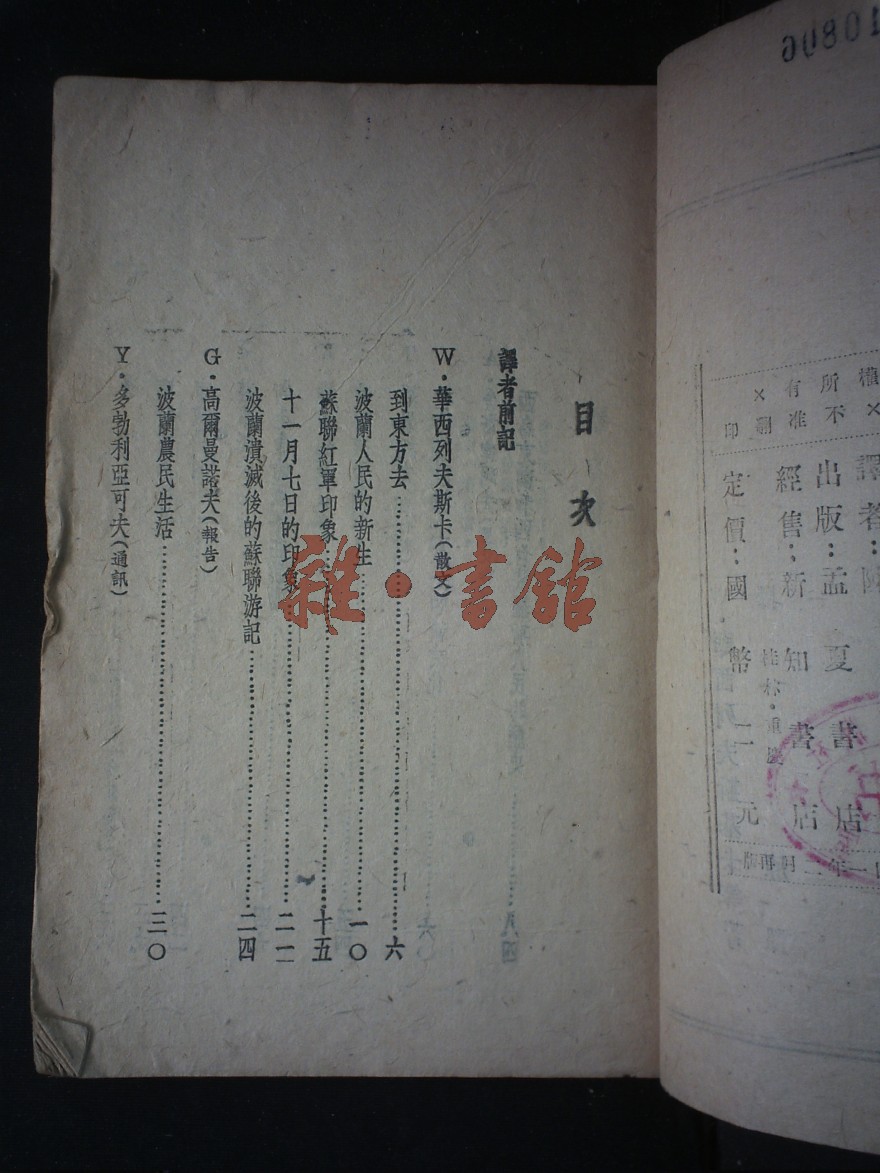 目次
譯者前記
W·華西列夫斯卡(散文)
到東方去……六
波蘭人民的新生……一〇
蘇聯紅軍印象……十五
十一月七日的印象……二一
波蘭潰滅後的蘇聯游記……二四
G·高爾曼諾夫(報告)
波蘭農民生活……三〇
Y·多勃利亞可夫(通訊)
雜·書館
00801
權
所不
有准
×翻
印
譯者:陳
出版:孟夏書店
經售:新知書店
桂林·重慶
定價:國幣二元
一年二月再版